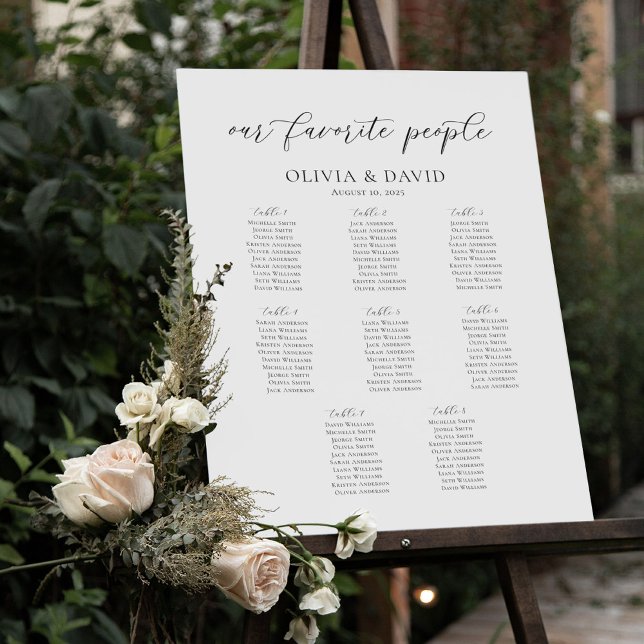 our favorite people
OLIVIA & DAVID
AUGUST 10, 2025
table 1
MICHELLE SMITH
JEORGE SMITH
OLIVIA SMITH
KRISTEN ANDERSON
OLIVER ANDERSON
JACK ANDERSON
SARAH ANDERSON
LIANA WILLIAMS
SETH WILLIAMS
DAVID WILLIAMS
table 2
JACK ANDERSON
SARAH ANDERSON
LIANA WILLIAMS
SETH WILLIAMS
DAVID WILLIAMS
MICHELLE SMITH
JEORGE SMITH
OLIVIA SMITH
KRISTEN ANDERSON
OLIVER ANDERSON
table 3
JEORGE SMITH
OLIVIA SMITH
JACK ANDERSON
SARAH ANDERSON
LIANA WILLIAMS
SETH WILLIAMS
KRISTEN ANDERSON
OLIVER ANDERSON
DAVID WILLIAMS
MICHELLE SMITH
table 4
SARAH ANDERSON
LIANA WILLIAMS
SETH WILLIAMS
KRISTEN ANDERSON
OLIVER ANDERSON
DAVID WILLIAMS
MICHELLE SMITH
JEORGE SMITH
OLIVIA SMITH
JACK ANDERSON
table 5
LIANA WILLIAMS
SETH WILLIAMS
DAVID WILLIAMS
JACK ANDERSON
SARAH ANDERSON
MICHELLE SMITH
JEORGE SMITH
OLIVIA SMITH
KRISTEN ANDERSON
OLIVER ANDERSON
table 6
DAVID WILLIAMS
MICHELLE SMITH
JEORGE SMITH
SARAH ANDERSON
LIANA WILLIAMS
SETH WILLIAMS
KRISTEN ANDERSON
OLIVER ANDERSON
JACK ANDERSON
OLIVIA SMITH
table 7
DAVID WILLIAMS
MICHELLE SMITH
JEORGE SMITH
OLIVIA SMITH
JACK ANDERSON
SARAH ANDERSON
LIANA WILLIAMS
SETH WILLIAMS
KRISTEN ANDERSON
OLIVER ANDERSON
table 8
MICHELLE SMITH
JEORGE SMITH
OLIVIA SMITH
KRISTEN ANDERSON
OLIVER ANDERSON
JACK ANDERSON
SARAH ANDERSON
LIANA WILLIAMS
SETH WILLIAMS
DAVID WILLIAMS